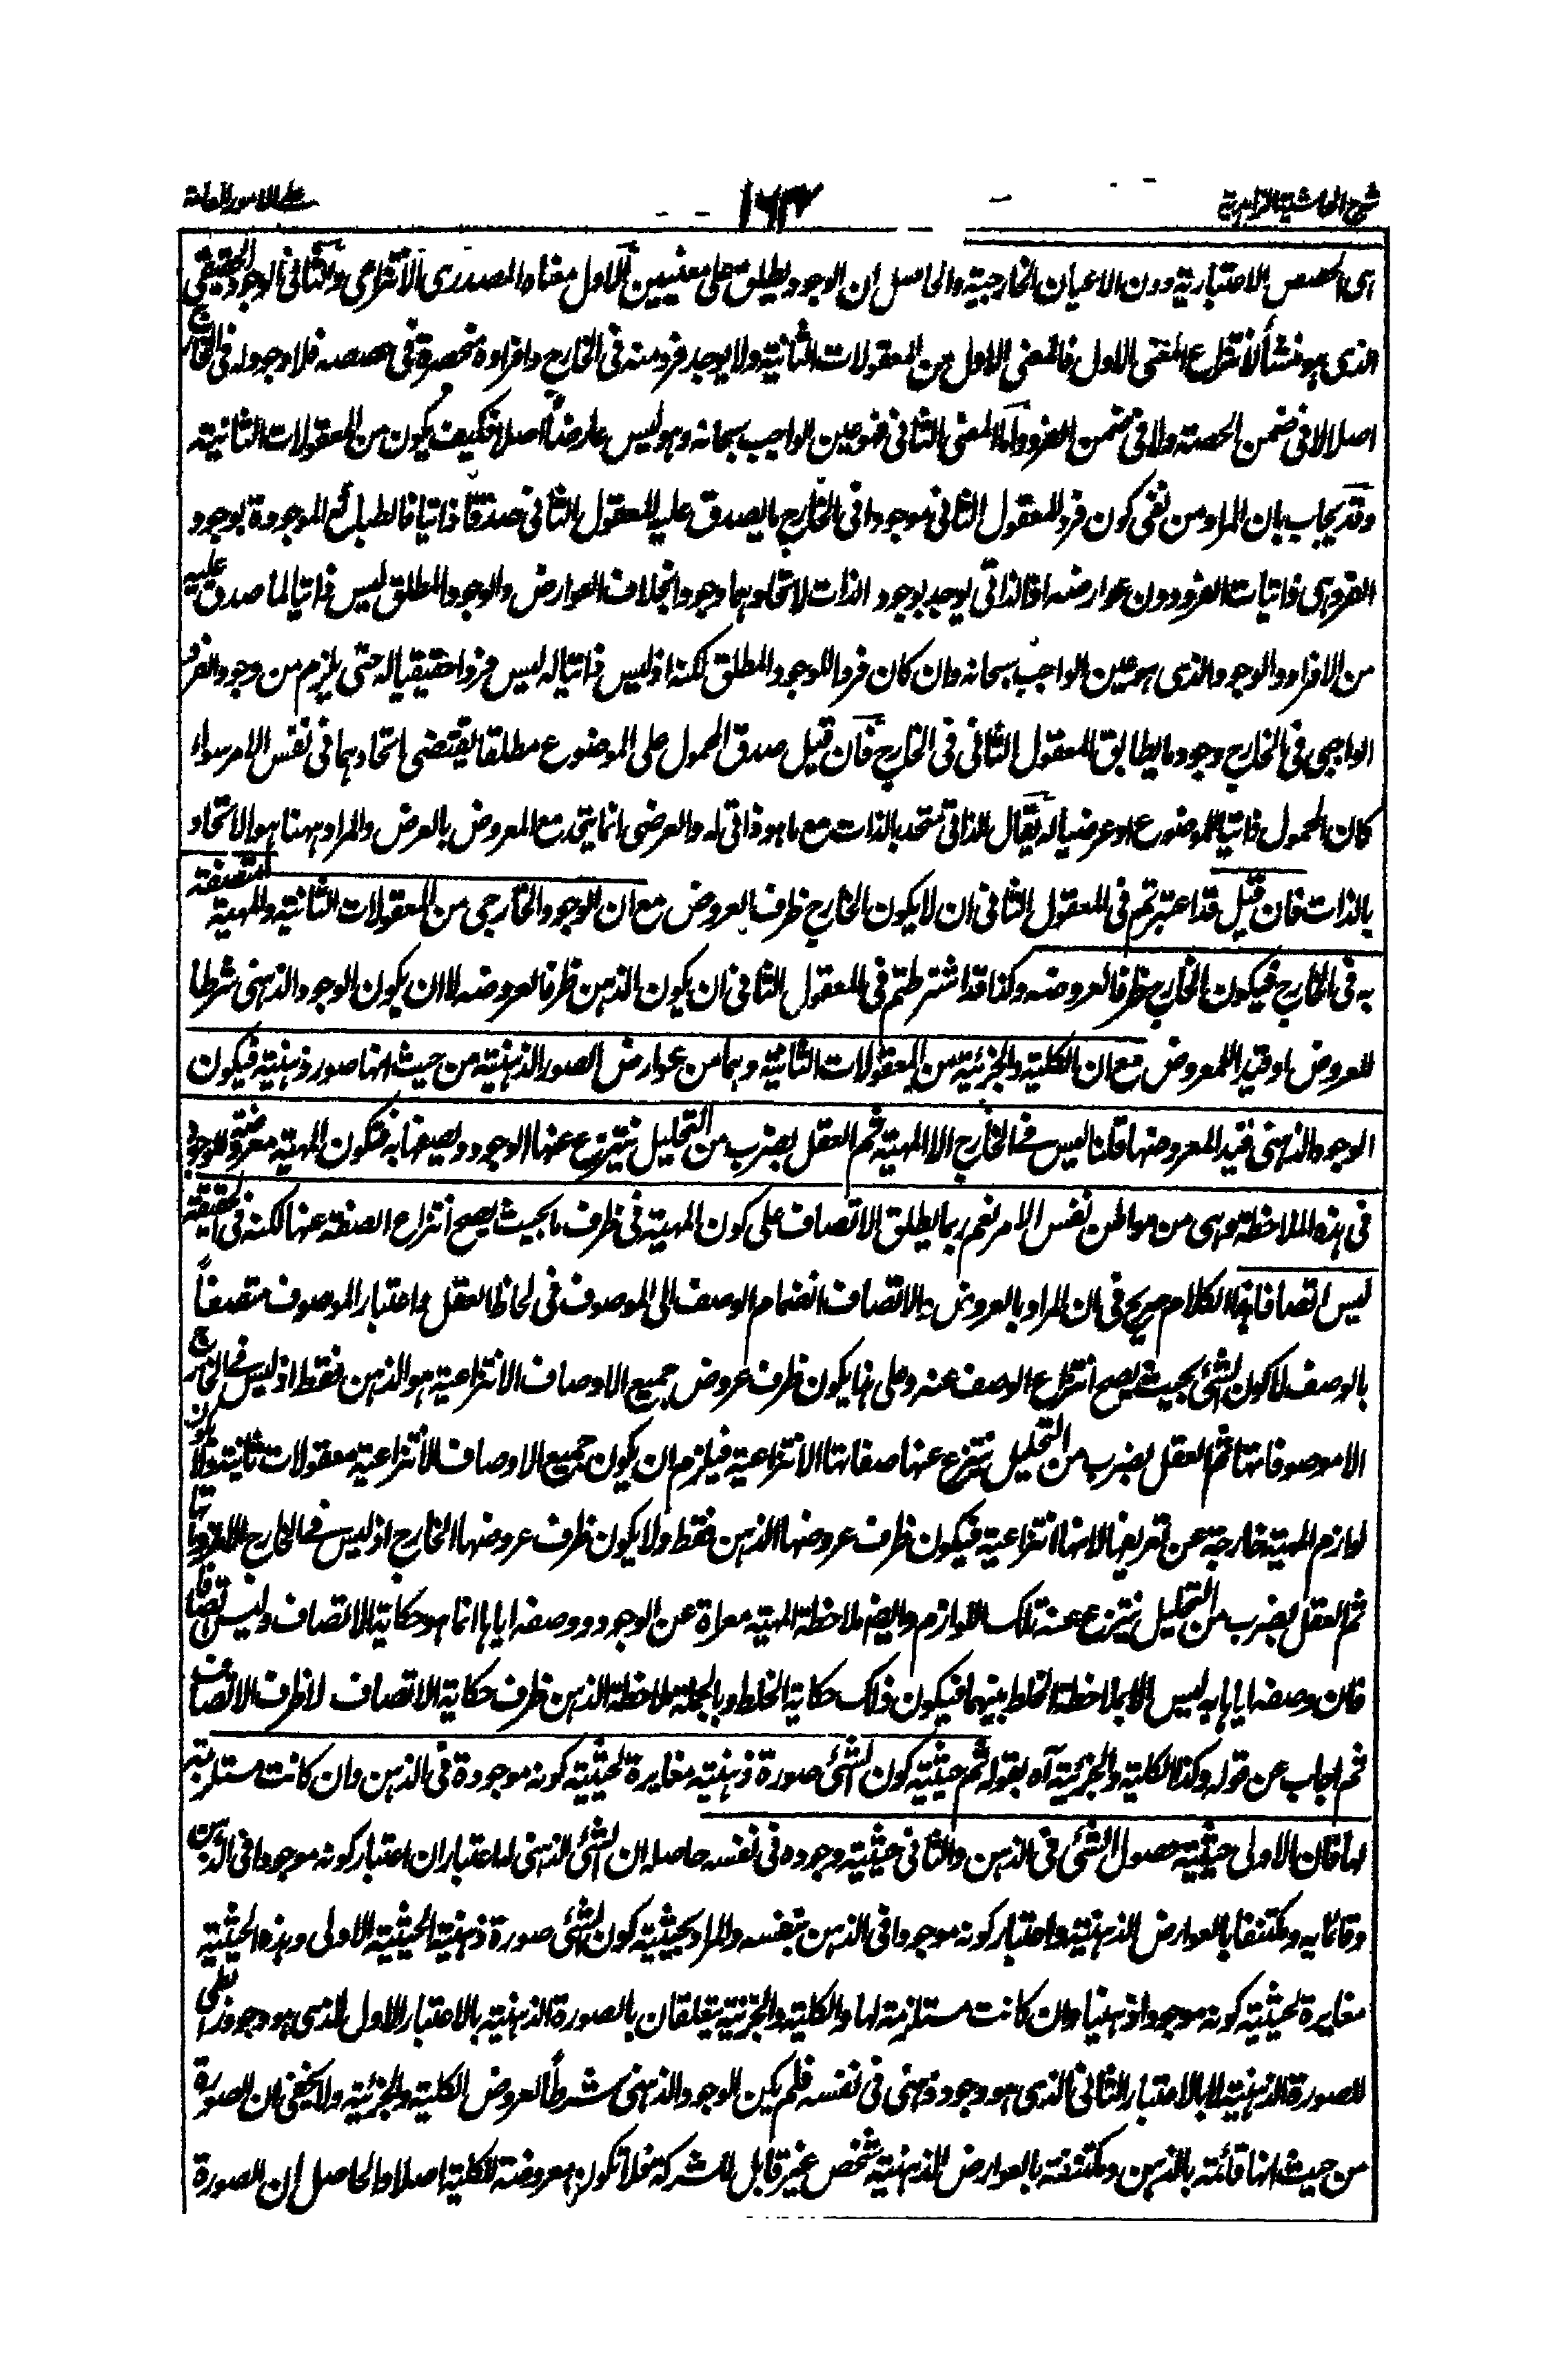 شرح الحاشية الزاهدية ١٦٣ على الامور العامة
اى الحصص الاعتبارية دون الاعيان الخارجية والحاصل ان الوجود يطلق على معنيين الاول معناه المصدرى الانتزاعى والثانى الوجود الحقيقى
الذى هو منشأ لانتزاع المعنى الاول فالمعنى الاول من المعقولات الثانية ولا يوجد فرد منه فى الخارج وافراده منحصرة فى حصصه فلا وجود له فى الخارج
اصلا لا فى ضمن الحصة ولا فى ضمن الفرد واما المعنى الثانى فهو عين الواجب سبحانه وهو ليس عارضا اصلا فكيف يكون من المعقولات الثانية
وقد يجاب بان المراد من نفى كون فرد المعقول الثانى موجودا فى الخارج ما يصدق عليه المعقول الثانى صدقا ذاتيا فالطبائع الموجودة بوجود
الفرد هى ذاتيات الفرد دون عوارضه اذ الذاتى يوجد بوجود الذات لاتحادهما وجودا بخلاف العوارض والوجود المطلق ليس ذاتيا لما صدق عليه
من الافراد والوجود الذى هو عين الواجب سبحانه وان كان فردا للوجود المطلق لكنه اذ ليس ذاتيا له ليس فردا حقيقيا له حتى يلزم من وجود الفرد
الواجبى فى الخارج وجود ما يطابق المعقول الثانى فى الخارج فان قيل صدق المحمول على الموضوع مطلقا يقتضى اتحادهما فى نفس الامر سواء
كان المحمول ذاتيا للموضوع او عرضيا له يقال الذاتى متحد بالذات مع ما هو ذاتى له والعرضى انما يتحد مع المعروض بالعرض والمراد ههنا هو الاتحاد
بالذات فان قيل قد اعتبرتم فى المعقول الثانى ان لا يكون الخارج ظرف العروض مع ان الوجود الخارجى من المعقولات الثانية والمهية متصفة
به فى الخارج فيكون الخارج ظرفا لعروضه وكذا قد اشترطتم فى المعقول الثانى ان يكون الذهن ظرفا لعروضه لا ان يكون الوجود الذهنى شرطا
للعروض او قيد اللمعروض مع ان الكلية والجزئية من المعقولات الثانية وهما من عوارض الصور الذهنية من حيث انها صور ذهنية فيكون
الوجود الذهنى قيد المعروضها قلنا ليس فى الخارج الا المهية ثم العقل بضرب من التحليل ينتزع عنها الوجود ويصفها به فتكون المهية معروضة للوجود
فى هذه الملاحظة وهى من مواطن نفس الامر نعم ربما يطلق الاتصاف على كون المهية فى ظرف ما بحيث يصح انتزاع الصفة عنها لكنه فى الحقيقة
ليس اتصافا هذا الكلام صريح فى ان المراد بالعروض والاتصاف انضمام الوصف الى الموصوف فى لحاظ العقل واعتبار الموصوف متصفاً
بالوصف لا كون الشئ بحيث يصح انتزاع الوصف عنه وعلى هذا يكون ظرف عروض جميع الاوصاف الانتزاعية هو الذهن فقط اذ ليس فى الخارج
الا موصوفاتها ثم العقل بضرب من التحليل ينتزع عنها صفاتها الانتزاعية فيلزم ان يكون جميع الاوصاف الانتزاعية معقولات ثانية ولا يكون
لوازم المهية خارجة عن تعريفها لانها انتزاعية فيكون ظرف عروضها الذهن فقط ولا يكون ظرف عروضها الخارج اذ ليس فى الخارج الا ملزوماتها
ثم العقل بضرب من التحليل ينتزع عنه تلك اللوازم وايضا ملاحظة المهية معراة عن الوجود ووصفه اياها انما هو حكاية الاتصاف وليس اتصافا
فان وصفه اياها به ليس الا بملاحظة الخلط بينهما فيكون ذلك حكاية الخلط وبالجملة ملاحظة الذهن ظرف حكاية الاتصاف لا ظرف الاتصاف
ثم اجاب عن قوله وكذا الكلية والجزئية آه بقوله ثم حيثية كون الشئ صورة ذهنية مغايرة لحيثية كونه موجودة فى الذهن وان كانت مستلزمة
لها فان الاولى حيثية حصول الشئ فى الذهن والثانى حيثية وجوده فى نفسه حاصله ان الشئ الذهنى له اعتباران اعتبار كونه موجودا فى الذهن
وقائما به ومكتنفا بالعوارض الذهنية واعتبار كونه موجودا فى الذهن بنفسه والمراد بحيثية كون الشئ صورة ذهنية الحيثية الاولى وهذه الحيثية
مغايرة لحيثية كونه موجودا ذهنيا وان كانت مستلزمة لها والكلية والجزئية يتعلقان بالصورة الذهنية بالاعتبار الاول الذى هو وجود رابطى
للصورة الذهنية لا بالاعتبار الثانى الذى هو وجود ذهنى فى نفسه فلم يكن الوجود الذهنى شرطاً لعروض الكلية والجزئية ولا يخفى ان الصورة
من حيث انها قائمة بالذهن ومكتنفة بالعوارض الذهنية شخص غير قابل للشركة فلا تكون معروضة للكلية اصلا والحاصل ان الصورة